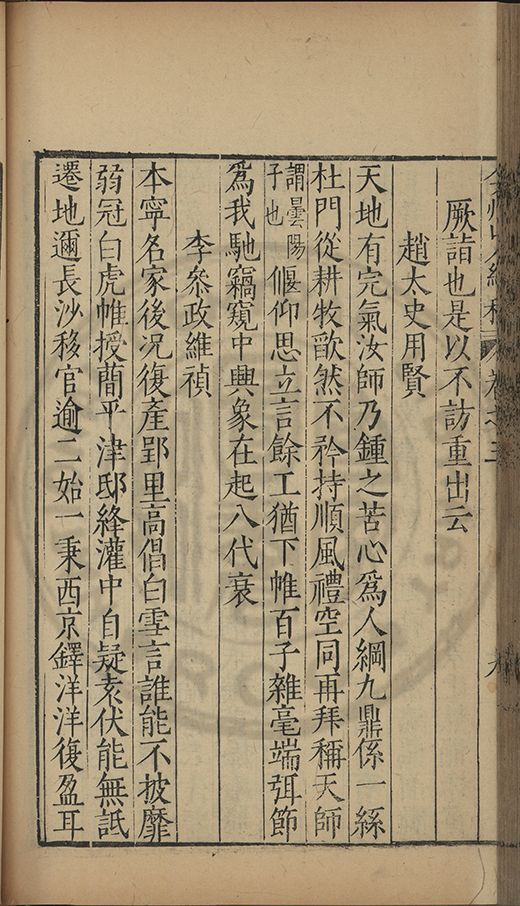 厥詣也是以不訪重出云
趙太史用賢
天地有完氣汝師乃鍾之苦心爲人綱九鼎係一絲
杜門從耕牧歐然不衿持順風禮空同再拜稱天師
謂曇陽子也偃仰思立言餘工猶下帷百子雜毫端弭節
爲我馳竊窺中興象在起八代衰
李叅政維禎
本寧名家後况復產郢里高倡白雪言誰能不披靡
弱冠白虎帷授蕳平津邸絳灌中自疑表伏能無詆
遷地邇長沙移官逾二始一秉西京鐸洋洋復盈耳